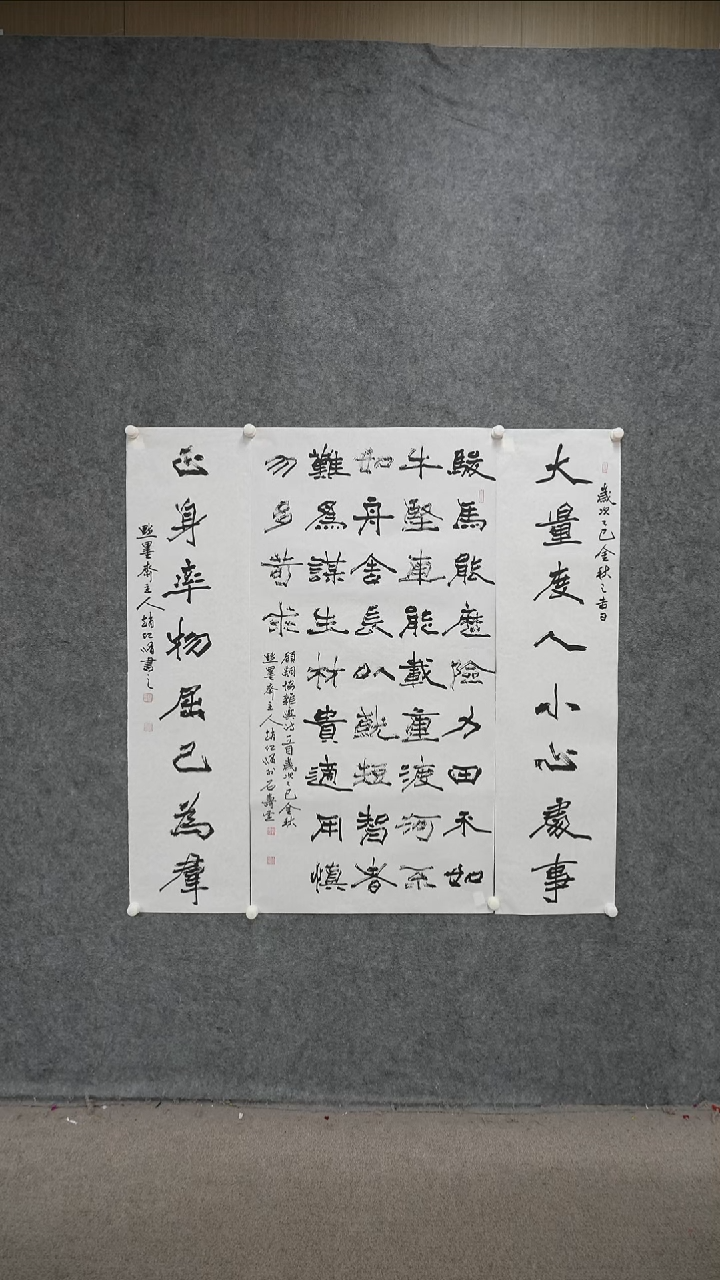 歲次乙巳金秋之吉日
大量度人小心處事
駿馬能歷險力田不如
牛堅車能載重渡河不
如舟舍長以就短智者
難為謀生材貴適用慎
勿多苛求
顧嗣協雜興詩一首歲次乙巳金秋
點墨齋主人趙
正身率物屈己為群
點墨齋主人趙 書之